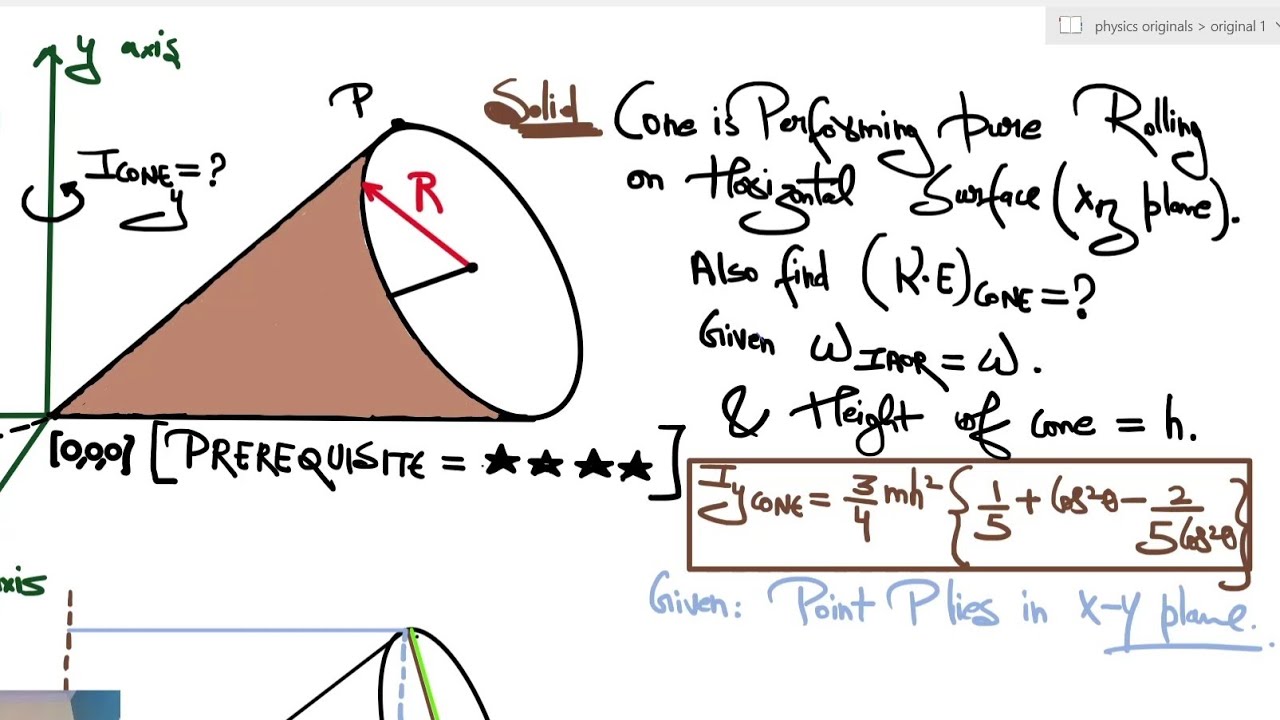 physics originals > original 1
y axis
P
Solid Cone is Performing pure Rolling
on Horizontal Surface (xz plane).
I CONE y = ?
R
Also find (K.E) CONE = ?
Given ω IAOR = ω.
& Height of cone = h.
[0,0,0] [PREREQUISITE = ★ ★ ★ ★]
I y CONE = 3/4 mh² { 1/5 + Cos²θ − 2/5Cos²θ }
Given: Point P lies in x-y plane.
xis